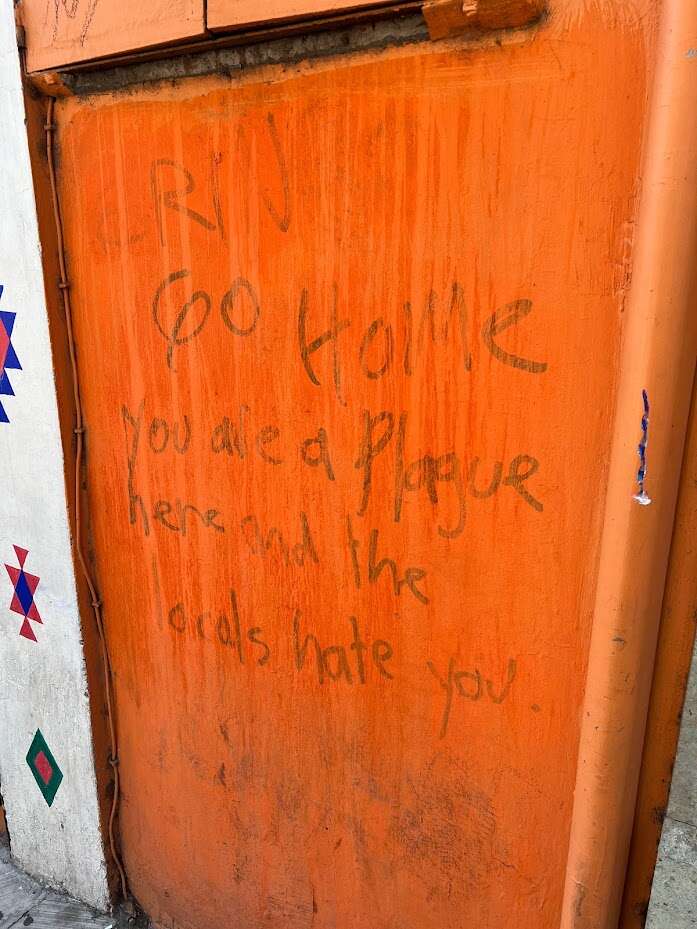 GO Home
you are a Plague
here and the
locals hate you.